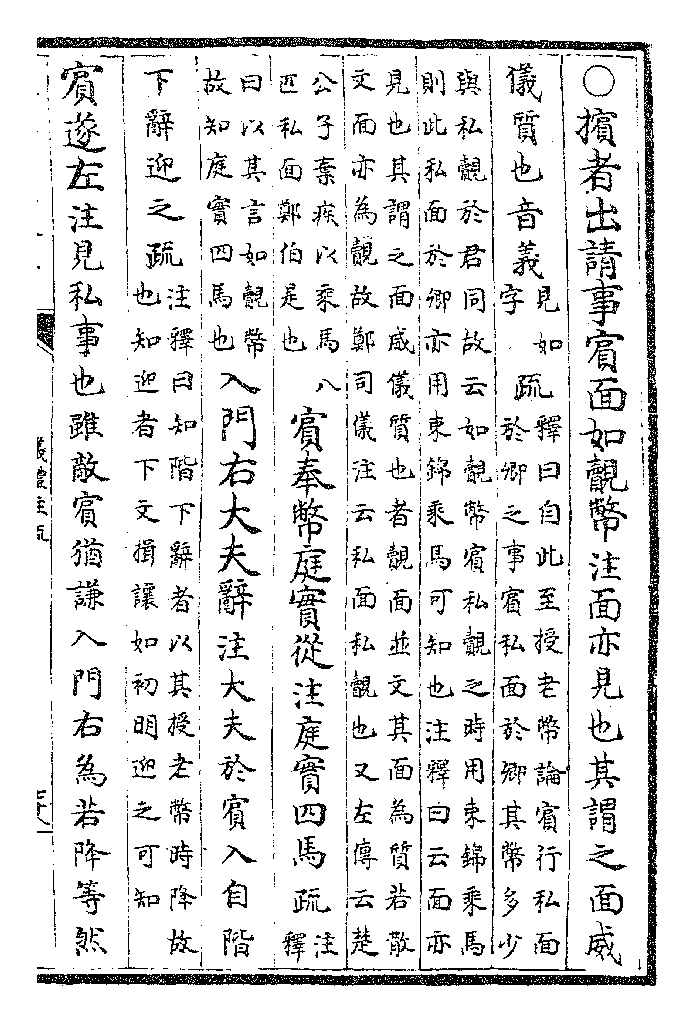 ○擯者出請事賓面如覿幣注面亦見也其謂之面威
儀質也音義見如
字
疏釋曰自此至授老幣論賓行私面
於卿之事賓私面於卿其幣多少
與私覿於君同故云如覿幣賓私覿之時用束錦乘馬
則此私面於卿亦用束錦乘馬可知也注釋曰云面亦
見也其謂之面威儀質也者覿面並文其面為質若散
文面亦為覿故鄭司儀注云私面私覿也又左傳云楚
公子棄疾以乘馬八
匹私面鄭伯是也
賓奉幣庭實從注庭實四馬疏注
釋
曰以其言如覿幣
故知庭實四馬也
入門右大夫辭注大夫於賓入自階
下辭迎之疏注釋曰知階下辭者以其授老幣時降故
也知迎者下文揖讓如初明迎之可知
賓遂左注見私事也雖敵賓猶謙入門右為若降等然
儀禮注疏